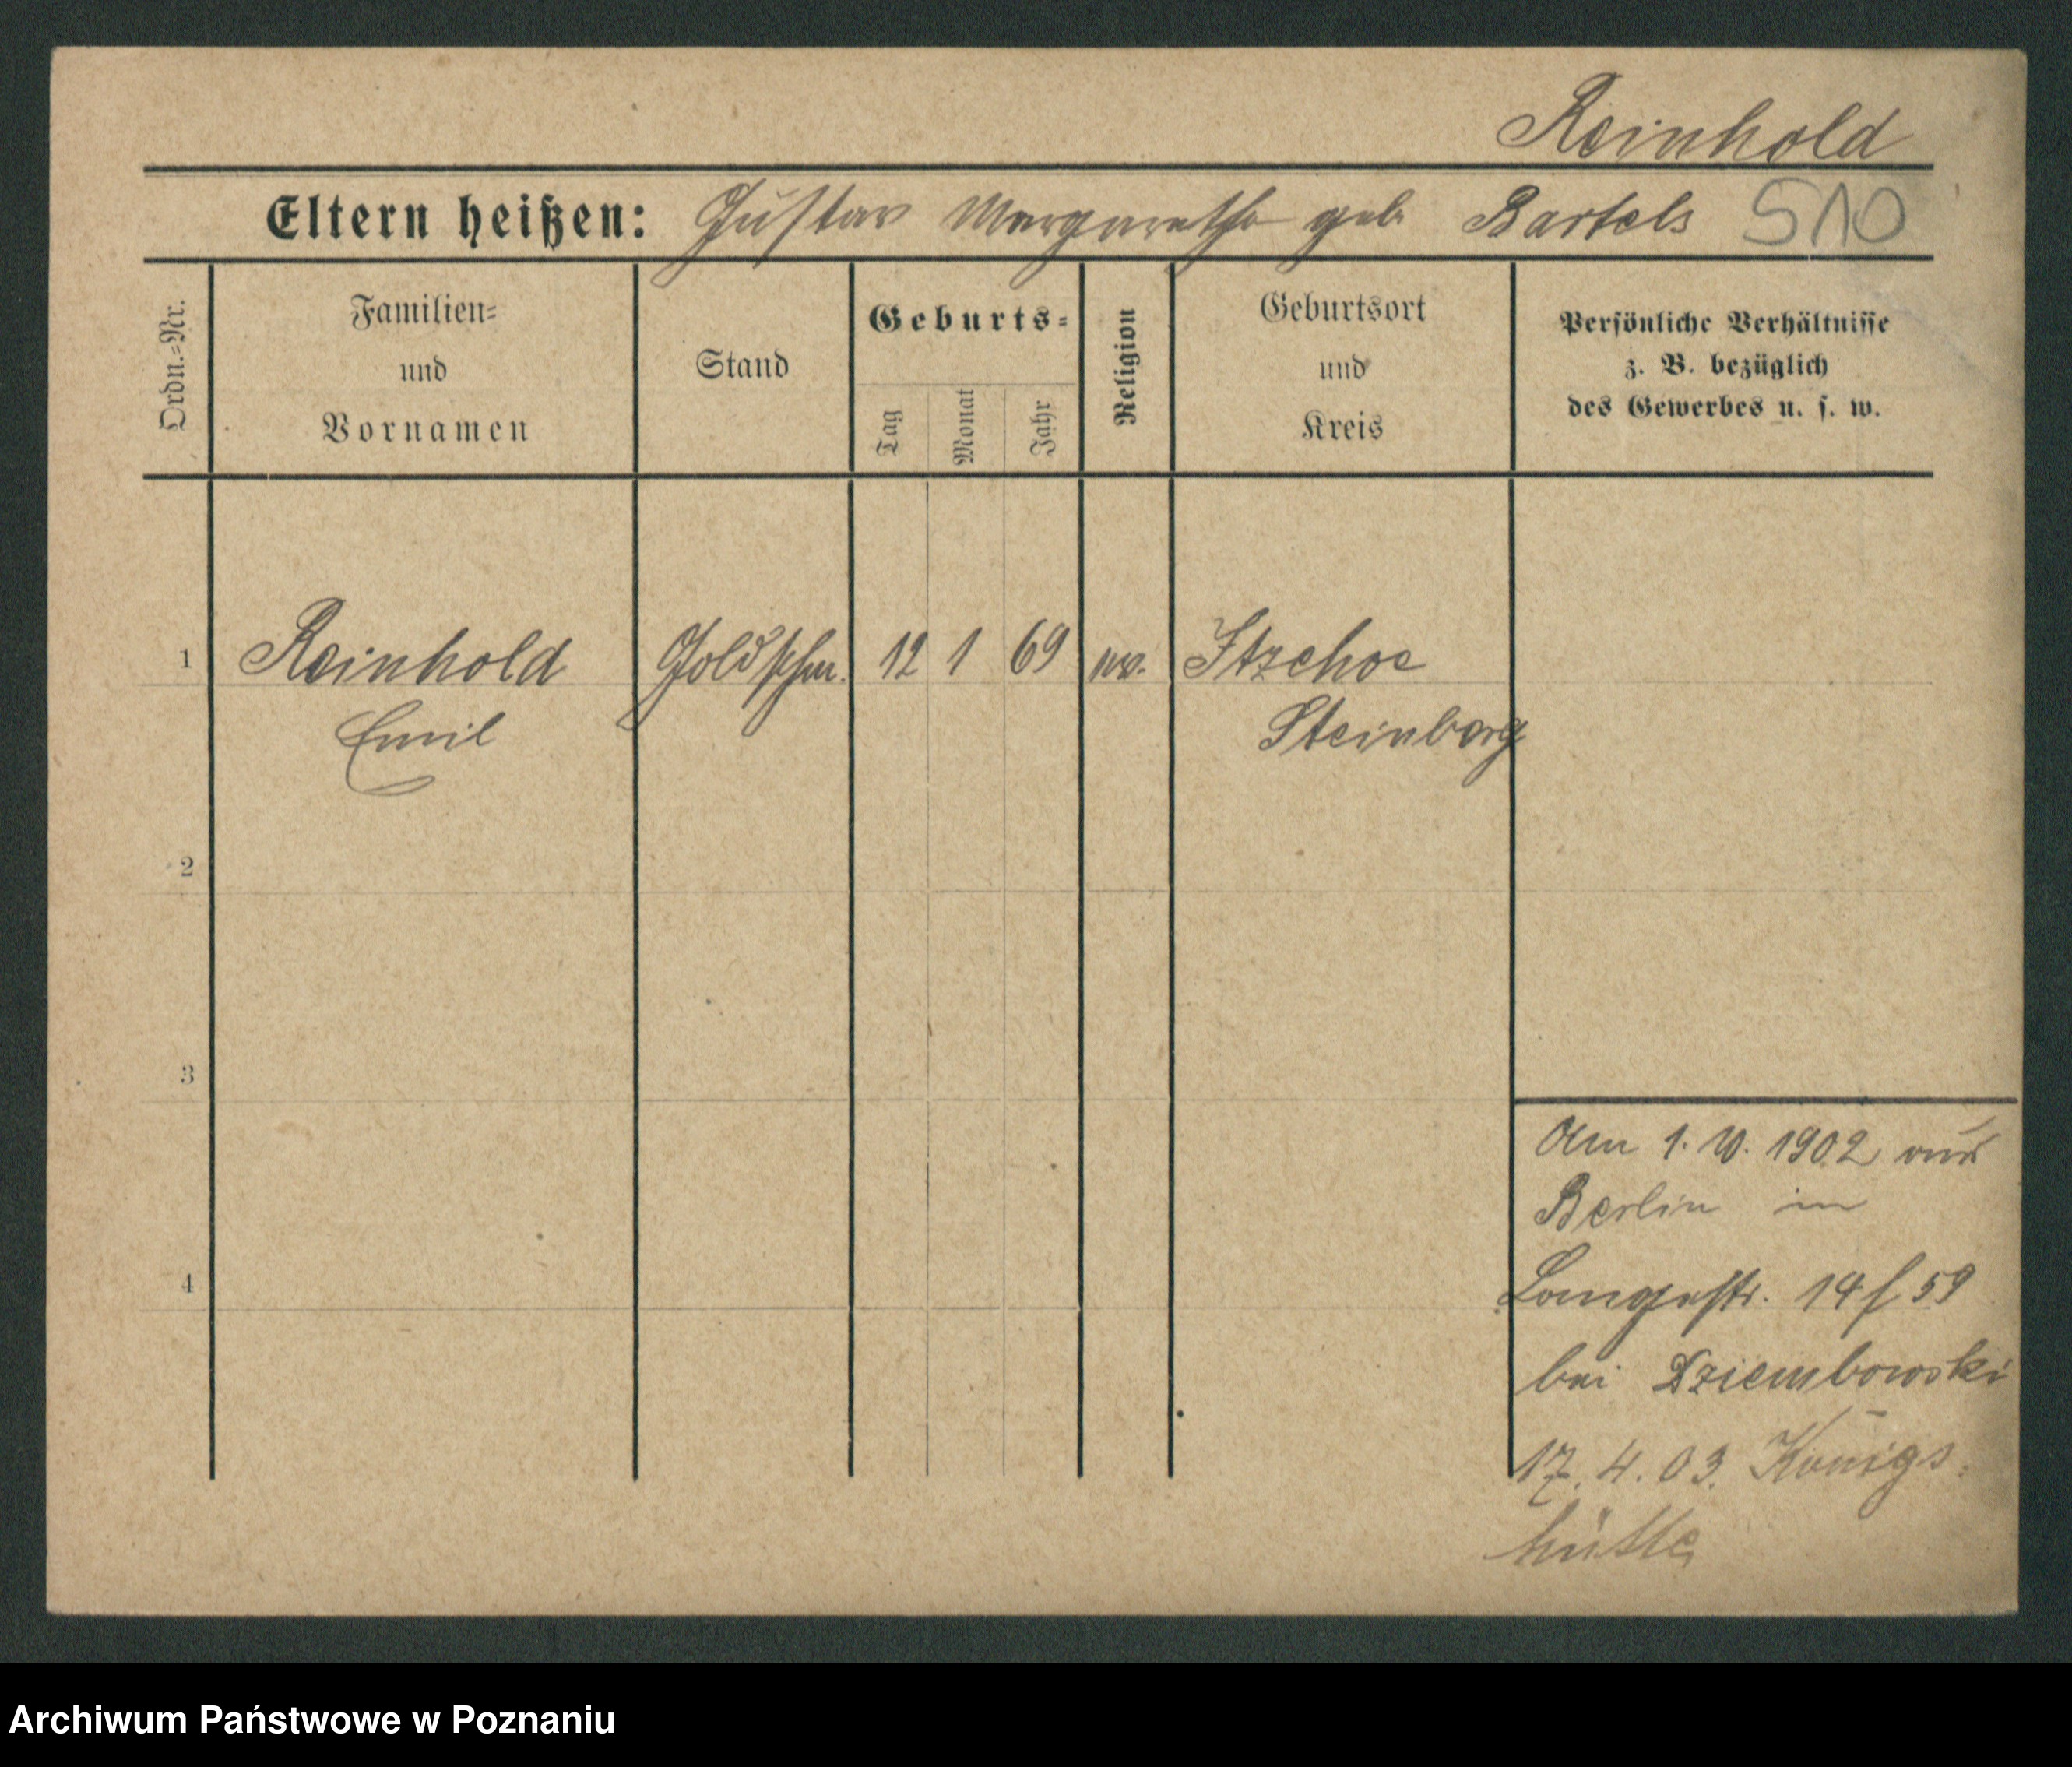 Reinhold
Eltern heißen: Gustav Margarethe geb. Bartels 510
Ordn.-Nr.
Familien-
und
Vornamen
Stand
Geburts-
Tag
Monat
Jahr
Religion
Geburtsort
und
Kreis
Persönliche Verhältnisse
z. B. bezüglich
des Gewerbes u. s. w.
1 Reinhold Goldschm. 12 1 69 ev. Itzehoe
Emil Steinberg
2
3
4
Am 1. 10. 1902 aus
Berlin in
Langestr. 14 f 59
bei Dziembowski
17. 4. 03. Königs-
hütte
Archiwum Państwowe w Poznaniu